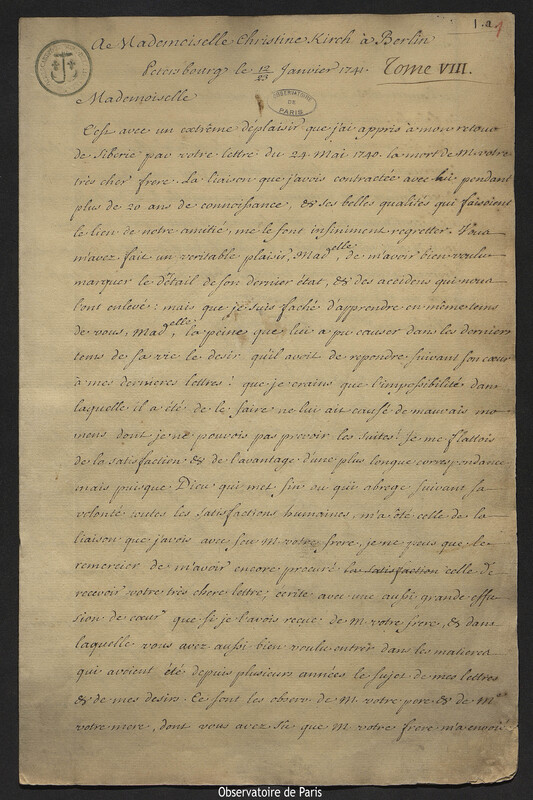 1.a. 1
A Mademoiselle Christine Kirch à Berlin
Petersbourg le 12/23 Janvier 1741. Tome VIII.
OBSERVATOIRE DE PARIS
Mademoiselle
C'est avec un extrême déplaisir que j'ai appris à mon retour
de Siberie par votre lettre du 24 Mai 1740. la mort de M. votre
très cher frere. La liaison que j'avois contractée avec lui pendant
plus de 20 ans de connoissance, & ses belles qualités qui faisoient
le lien de notre amitié, me le font infiniment regretter. Vous
m'avez fait un veritable plaisir, Mad.elle, de m'avoir bien voulu
marquer le détail de son dernier état, & des accidens qui nous
l'ont enlevé: mais que je suis faché d'apprendre en même tems
de vous, Mad.elle, la peine que lui a pu causer dans les derniers
tems de sa vie le desir qu'il avoit de repondre suivant son cœur
à mes dernieres lettres! que je crains que l'impossibilité dans
laquelle il a été de le faire ne lui ait causé de mauvais mo-
mens dont je ne pouvois pas prevoir les suites! Je me flattois
de la satisfaction & de l'avantage d'une plus longue correspondance
mais puisque Dieu qui met fin ou qui abrege suivant sa
volonté toutes les satisfactions humaines, m'a ôté celle de la
liaison que j'avois avec feu M. votre frere, je ne peus que le
remercier de m'avoir encore procuré la satisfaction celle de
recevoir votre très chere lettre; écrite avec une aussi grande effu-
sion de cœur que si je l'avois reçue de M. votre frere, & dans
laquelle vous avez aussi bien voulu entrer dans les matieres
qui avoient été depuis plusieurs années le sujet de mes lettres
& de mes desirs. Ce sont les observ. de M. votre pere & de M.e
votre mere, dont vous avez su que M. votre frere m'a envoié
Observatoire de Paris